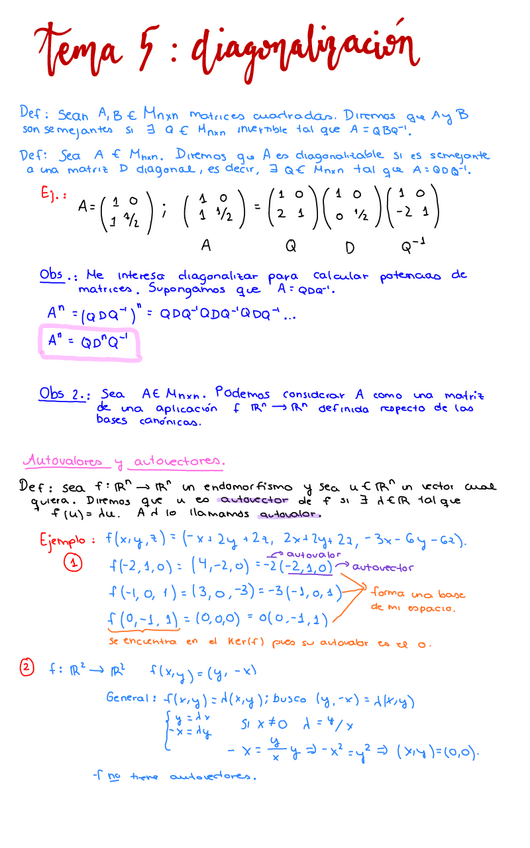 Tema 5 : diagonalización
Def: Sean A, B ∈ Mnxn matrices cuadradas. Diremos que A y B
son semejantes si ∃ Q ∈ Mnxn invertible tal que A = QBQ⁻¹.
Def: Sea A ∈ Mnxn. Diremos que A es diagonalizable si es semejante
a una matriz D diagonal, es decir, ∃ Q ∈ Mnxn tal que A = QDQ⁻¹.
Ej.: A = (1 0 / 1 1/2) ; (1 0 / 1 1/2) = (1 0 / 2 1) (1 0 / 0 1/2) (1 0 / -2 1)
A Q D Q⁻¹
Obs.: Me interesa diagonalizar para calcular potencias de
matrices. Supongamos que A = QDQ⁻¹.
Aⁿ = (QDQ⁻¹)ⁿ = QDQ⁻¹QDQ⁻¹QDQ⁻¹...
Aⁿ = QDⁿQ⁻¹
Obs 2.: Sea A ∈ Mnxn. Podemos considerar A como una matriz
de una aplicación f ℝⁿ → ℝⁿ definida respecto de las
bases canónicas.
Autovalores y autovectores.
Def: sea f: ℝⁿ → ℝⁿ un endomorfismo y sea u ∈ ℝⁿ un vector cual
quiera. Diremos que u es autovector de f si ∃ λ ∈ ℝ tal que
f(u) = λu. A λ lo llamamos autovalor.
Ejemplo: f(x,y,z) = (-x + 2y + 2z, 2x + 2y + 2z, -3x - 6y - 6z).
→ autovalor
① f(-2,1,0) = (4,-2,0) = -2(-2,1,0) → autovector
f(-1,0,1) = (3,0,-3) = -3(-1,0,1) forma una base
f(0,-1,1) = (0,0,0) = 0(0,-1,1) de mi espacio.
se encuentra en el Ker(f) pues su autovalor es el 0.
② f: ℝ² → ℝ² f(x,y) = (y, -x)
General: f(x,y) = λ(x,y); busco (y, -x) = λ(x,y)
{ y = λx si x ≠ 0 λ = y/x
-x = λy
-x = y/x y ⇒ -x² = y² ⇒ (x,y) = (0,0).
-f no tiene autovectores.